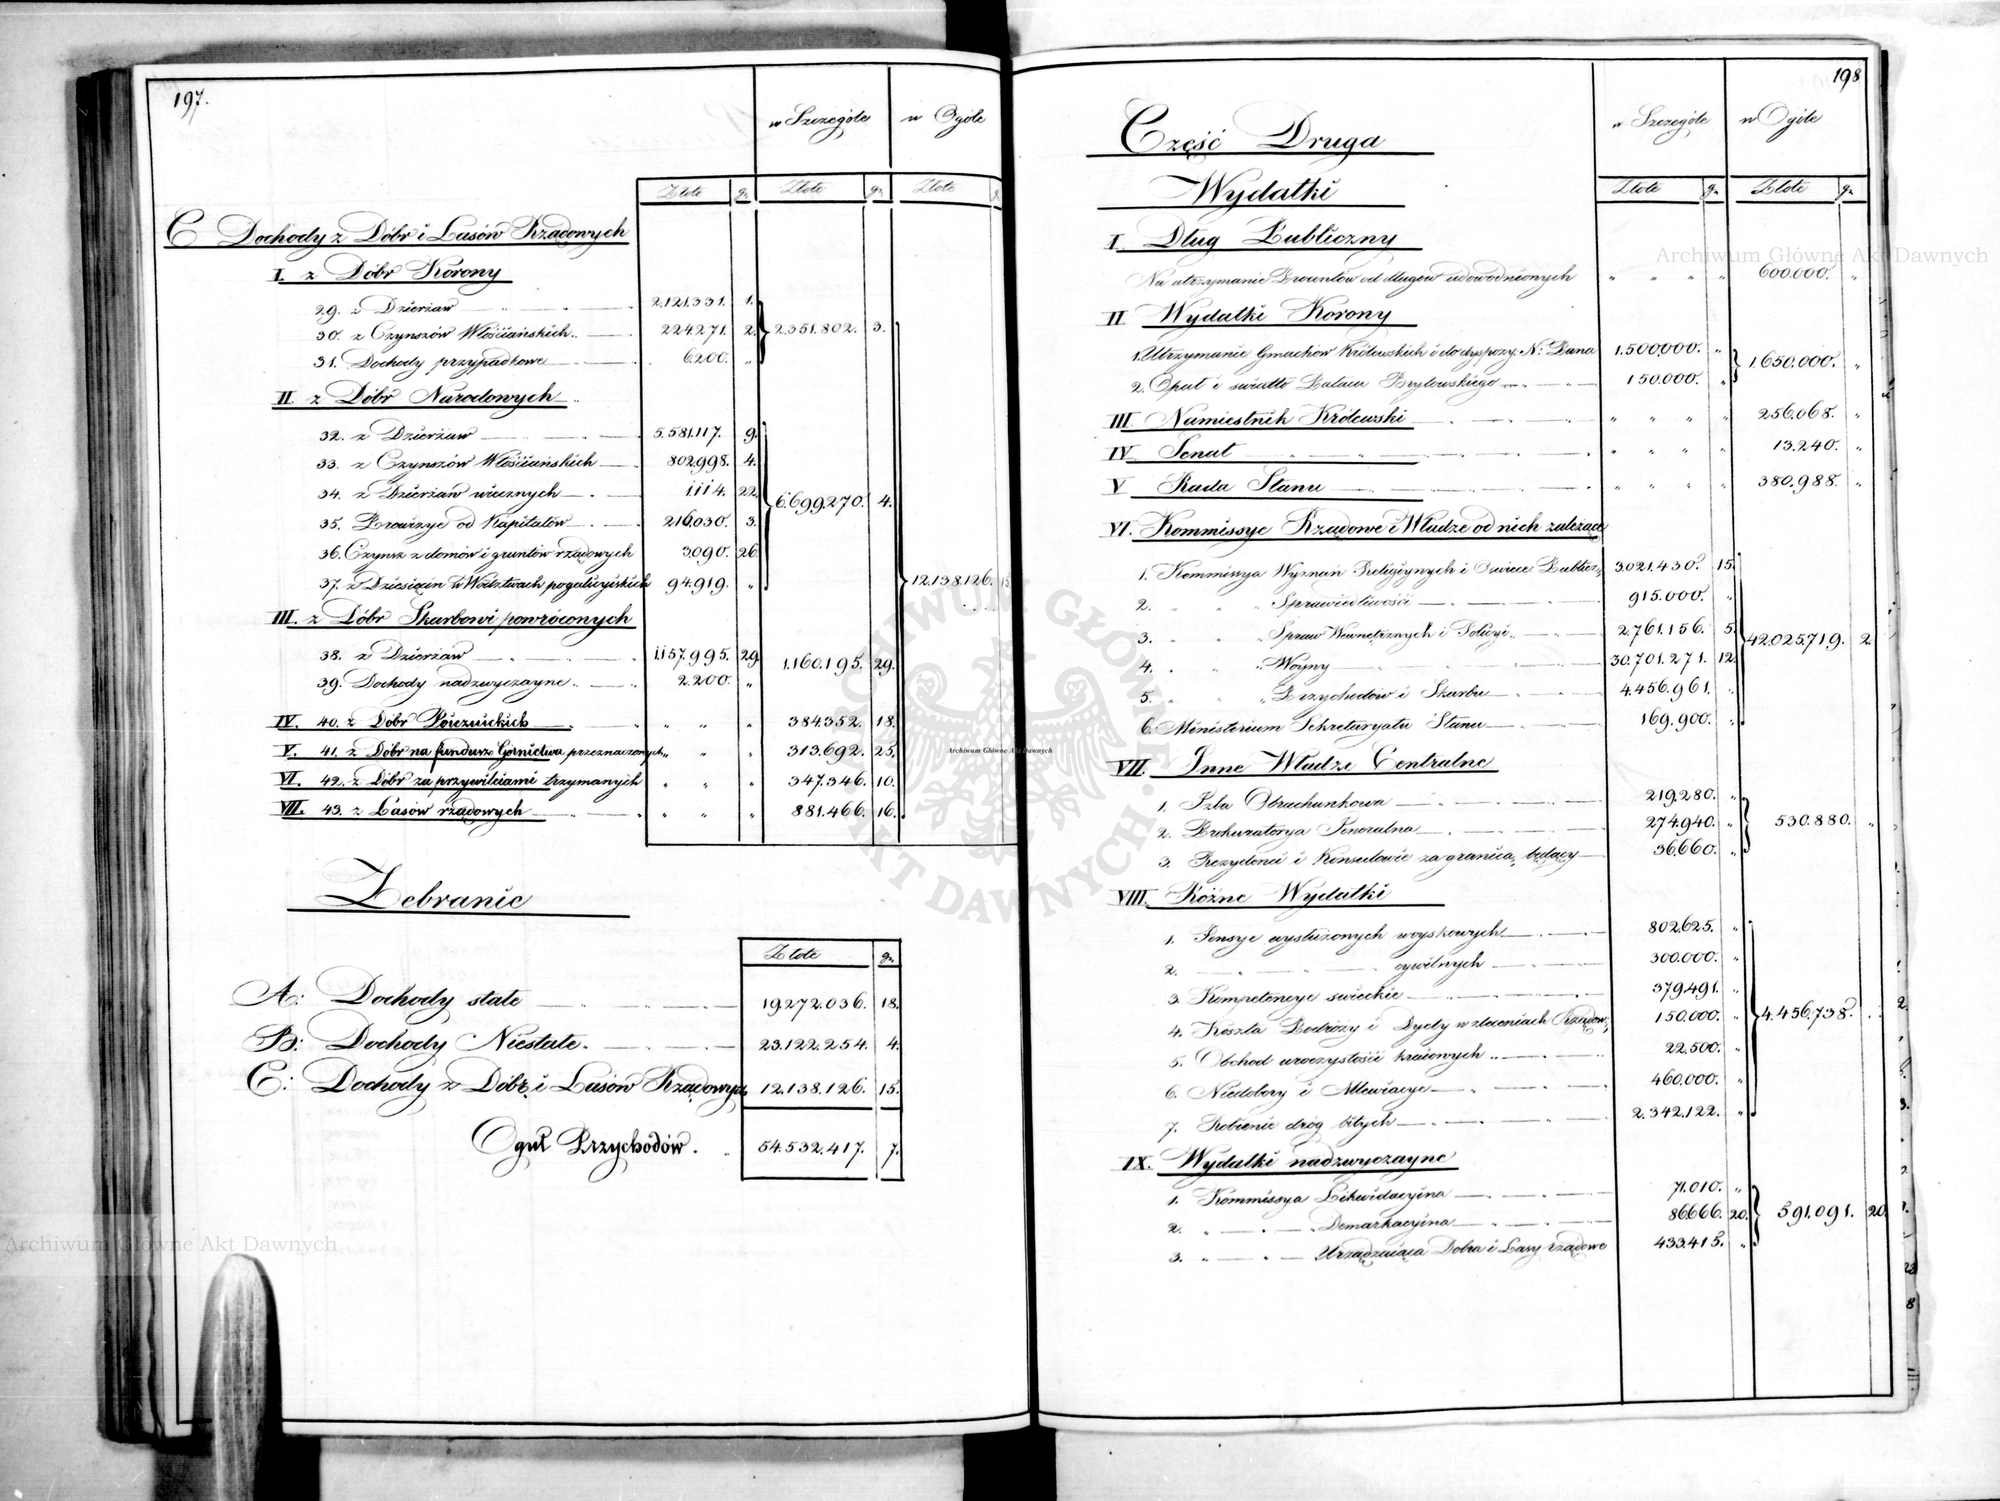 197.
w Szczególe
w Ogóle
Złote gr. Złote gr. Złote g
C Dochody z Dóbr i Lasów Rządowych
I. z Dóbr Korony
29. z Dzierżaw 2.121.331. 1.
30. z Czynszów Włościańskich 224.271. 2. 2.351.802. 3.
31. Dochody przypadkowe 6.200. "
II z Dóbr Narodowych
32. z Dzierżaw 5.581.117. 9.
33. z Czynszów Włościańskich 802.998. 4.
34. z Dzierżaw wiecznych 1.114. 22. 6.699.270. 4.
35. Prowizye od Kapitałów 216.030. 3.
36. Czynsz z domów i gruntów rządowych 3.090. 26.
37. z Dziesięcin w Wodztwach pogalicyiskich 94.919. " 12.138.126. 15
III. z Dóbr Skarbowi powróconych
38. z Dzierżaw 1.157.995. 29. 1.160.195. 29.
39. Dochody nadzwyczayne 2.200. "
IV. 40. z Dóbr Poiezuickich " " " 384.352. 18.
V. 41. z Dóbr na fundusz Górnictwa przeznaczonych " " " 313.692. 25.
VI. 42. z Dóbr za przywileiami trzymanych " " " 347.346. 10.
VII. 43. z Lasów rządowych " " " 881.466. 16.
Zebranie
Złote gr.
A: Dochody stałe 19.272.036. 18.
B: Dochody Niestałe 23.122.254. 4.
C: Dochody z Dóbr i Lasów Rządowych 12.138.126. 15.
Oguł Przychodów. 54.532.417. 7.
198
w Szczególe
w Ogóle
Złote gr. Złote gr.
Część Druga
Wydatki
I. Dług Publiczny
Na utrzymanie Procentów od długów udowodnionych " " " " 600.000. "
II Wydatki Korony
1. Utrzymanie Gmachów Królewskich i do dyspozy: N: Pana 1.500.000. " 1.650.000. "
2. Opał i światło Pałacu Brylowskiego 150.000. "
III Namiestnik Królewski " " " " 256.068. "
IV Senat " " " " 13.240. "
V Rada Stanu " " " " 380.988. "
VI. Kommissye Rządowe i Władze od nich zależące
1. Kommissya Wyznań Religiynych i Oświece: Publicz: 3.021.430. 15.
2. " " " Sprawiedliwości 915.000. "
3. " " " Spraw Wewnętrznych i Policyi 2.761.156. 5. 42.025.719. 2.
4. " " " Woyny 30.701.271. 12.
5. " " " Przychodów i Skarbu 4.456.961. "
6. Ministerium Sekretaryatu Stanu 169.900. "
VII. Inne Władze Centralne
1. Izba Obrachunkowa 219.280. "
2. Prokuratorya Jeneralna 274.940. " 530.880. "
3. Rezydenci i Konsulowie za granicą będący 36.660. "
VIII. Różne Wydatki
1. Pensye wysłużonych woyskowych 802.625. "
2. " " cywilnych 300.000. "
3. Kompetencye świeckie 379.491. "
4. Koszta Podróży i Dyety w zleceniach Rządow: 150.000. " 4.456.738. "
5. Obchod uroczystości kraiowych 22.500. "
6. Niedobory i Allewiacye 460.000. "
7. Robienie dróg bitych 2.342.122. "
IX. Wydatki nadzwyczayne
1. Kommissya Likwidacyina 71.010. "
2. " " Demarkacyina 86.666. 20. 591.091. 20.
3. " " Urządzaiąca Dobra i Lasy rządowe 433.415. "
Archiwum Główne Akt Dawnych
Archiwum Główne Akt Dawnych
Archiwum Główne Akt Dawnych
ARCHIWUM GŁÓWNE AKT DAWNYCH